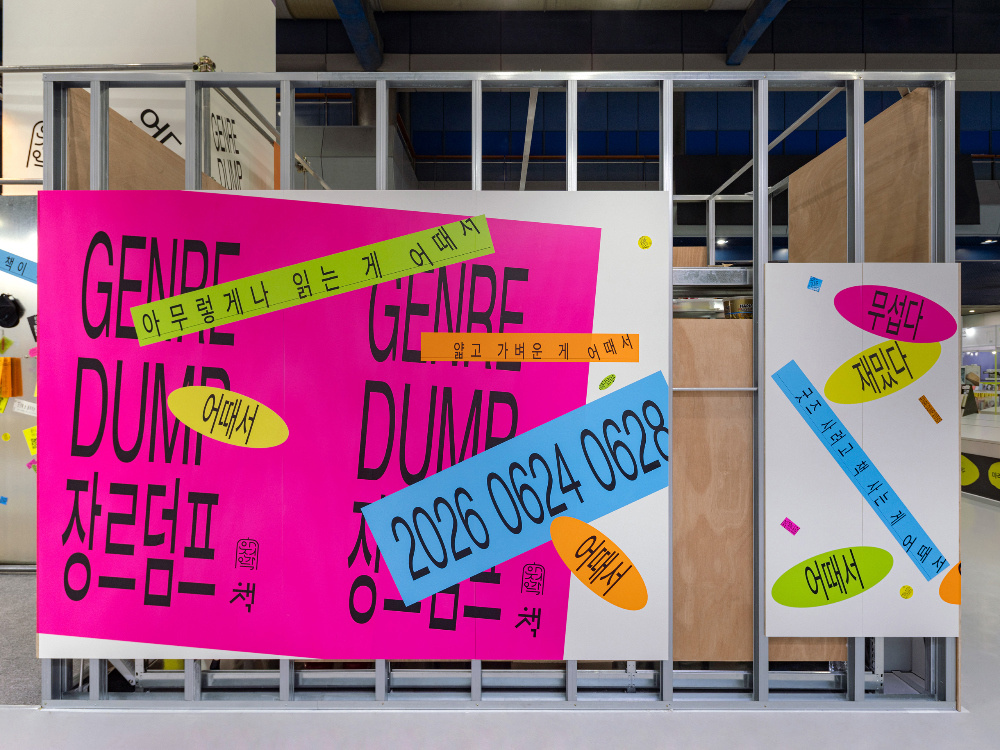 GENRE
DUMP
장르덤프
책
GENRE
DUMP
장르덤프
책
아무렇게나 읽는 게 어때서
얇고 가벼운 게 어때서
어때서
2026 0624 0628
어때서
무섭다
재밌다
굿즈 사려고 책 사는 게 어때서
어때서
GENRE
DUMP
책이